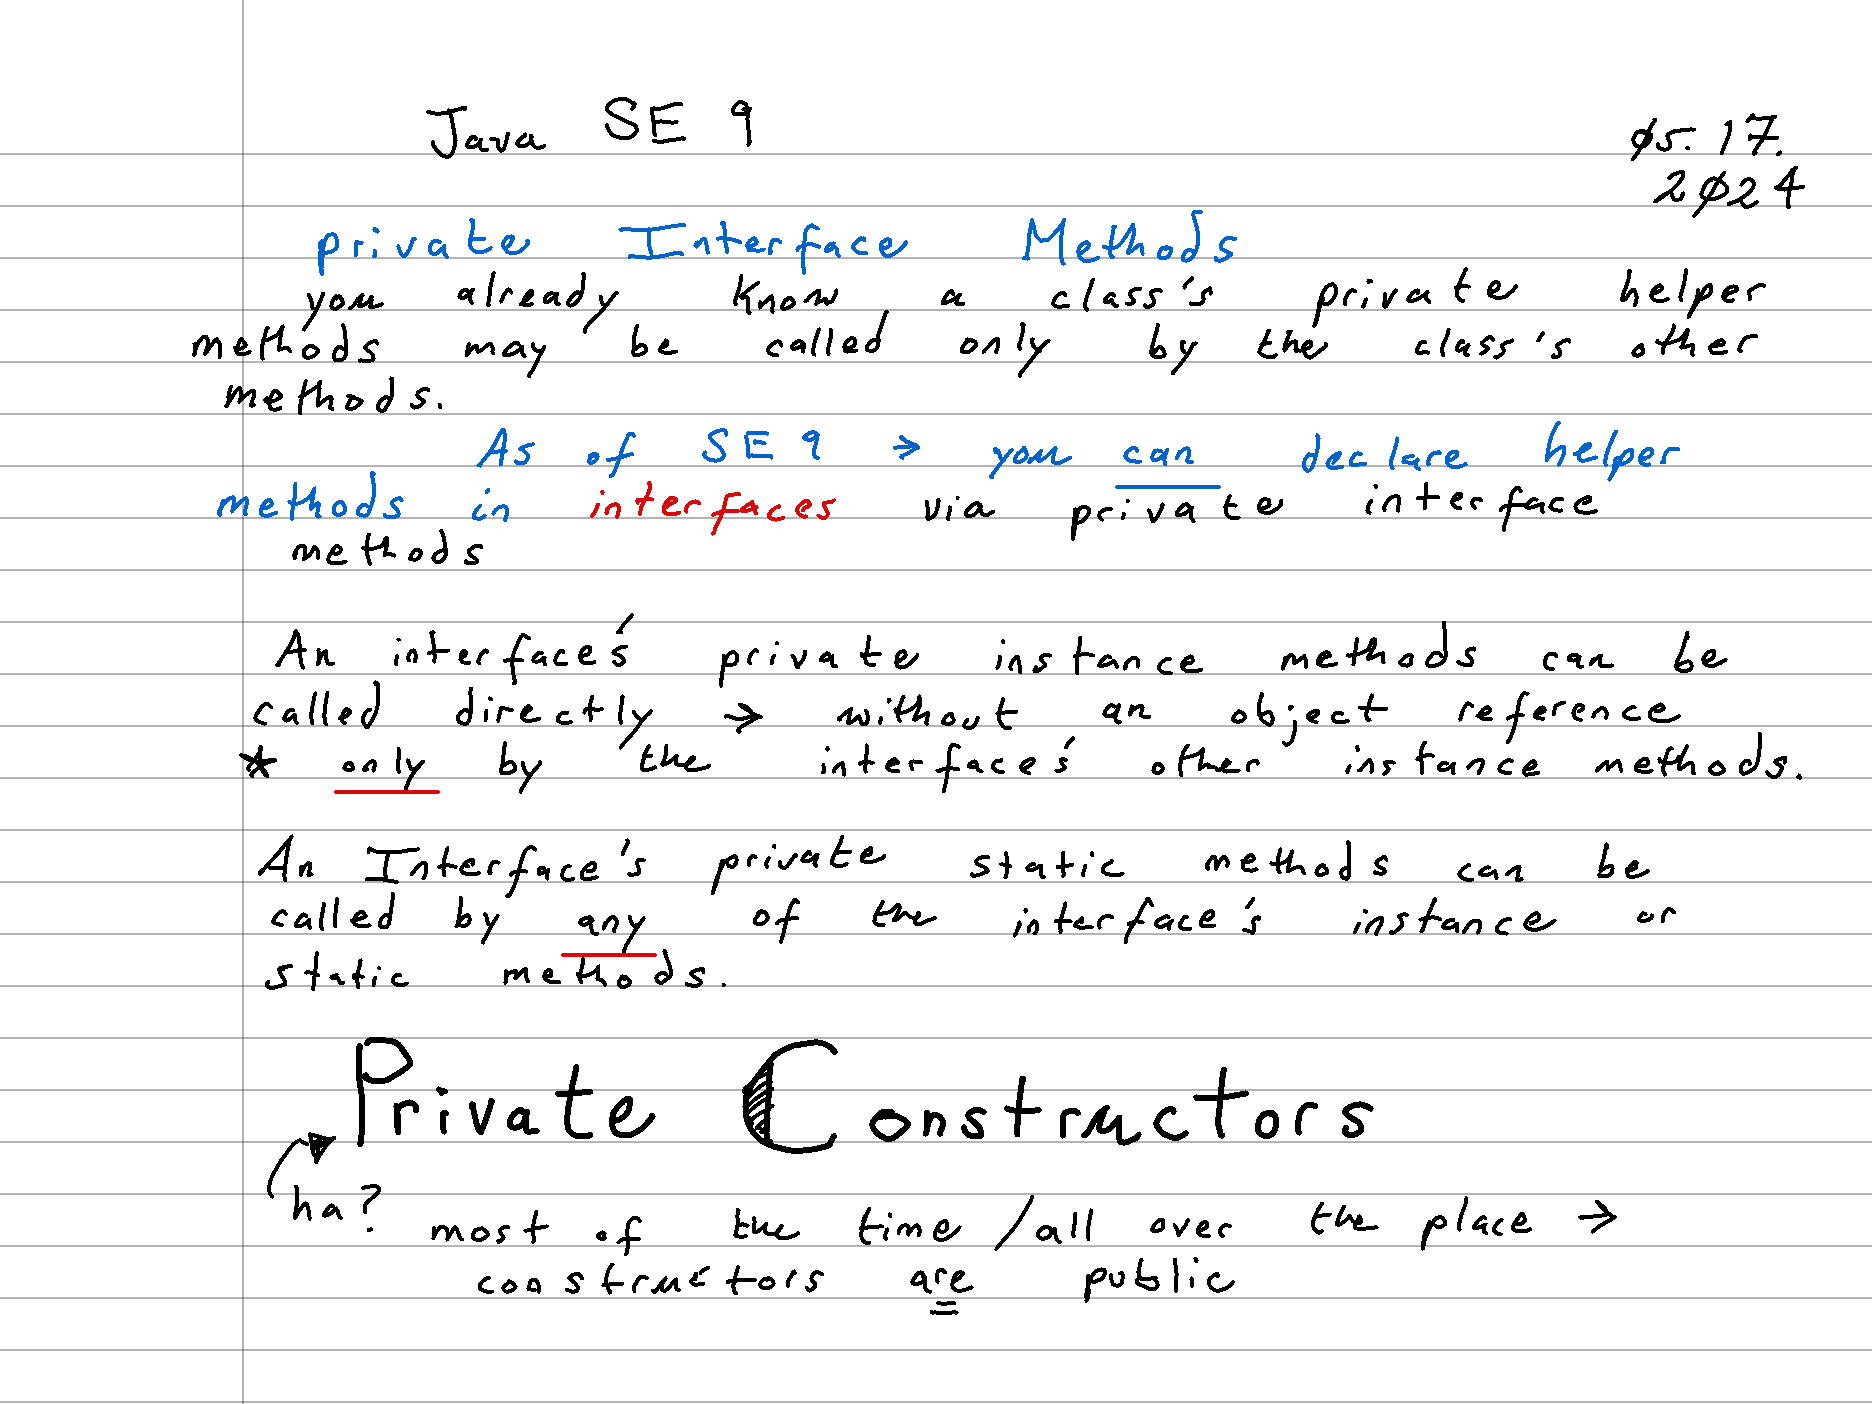 Java SE 9
Ø5.17.
2Ø24
private Interface Methods
you already know a class's private helper
methods may be called only by the class's other
methods.
As of SE 9 → you can declare helper
methods in interfaces via private interface
methods
An interface's private instance methods can be
called directly → without an object reference
* only by the interface's other instance methods.
An Interface's private static methods can be
called by any of the interface's instance or
static methods.
Private Constructors
ha?
most of the time /all over the place →
constructors are public